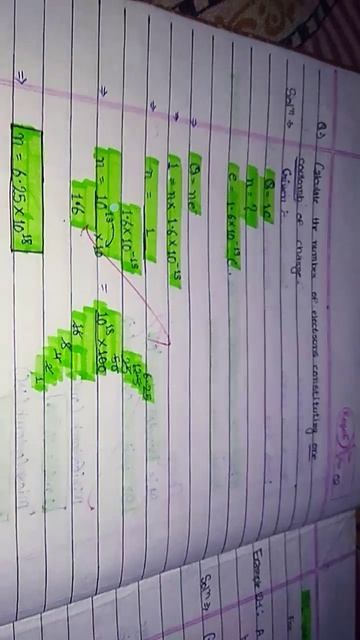 Q3 Calculate the number of electrons constituting one
coulomb of charge.
Solⁿ → Given :-
Q = 1c
n = ?
e = 1.6×10⁻¹⁹c
Q = ne
→ 1 = n × 1.6×10⁻¹⁹
→ n = 1
1.6×10⁻¹⁹
⇒ n = 10¹⁹ × 10 = 10¹⁸ × 100
1.6 16
6.25
12.5
25
50
8
4
2
1
⇒ n = 6.25 × 10¹⁸
Example
Solⁿ →